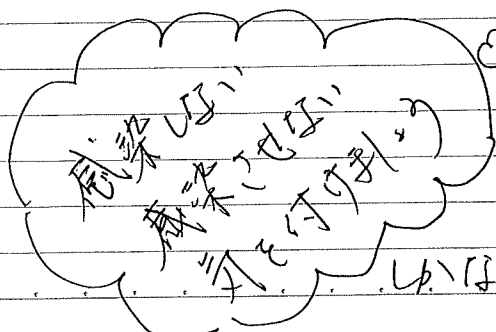 感染しない
感染させない
気を付けましょう